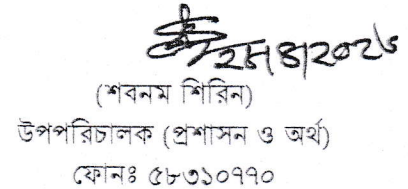 ২৮/৪/২০২৬
(শবনম শিরিন)
উপপরিচালক (প্রশাসন ও অর্থ)
ফোনঃ ৫৮৩১০৭৭০